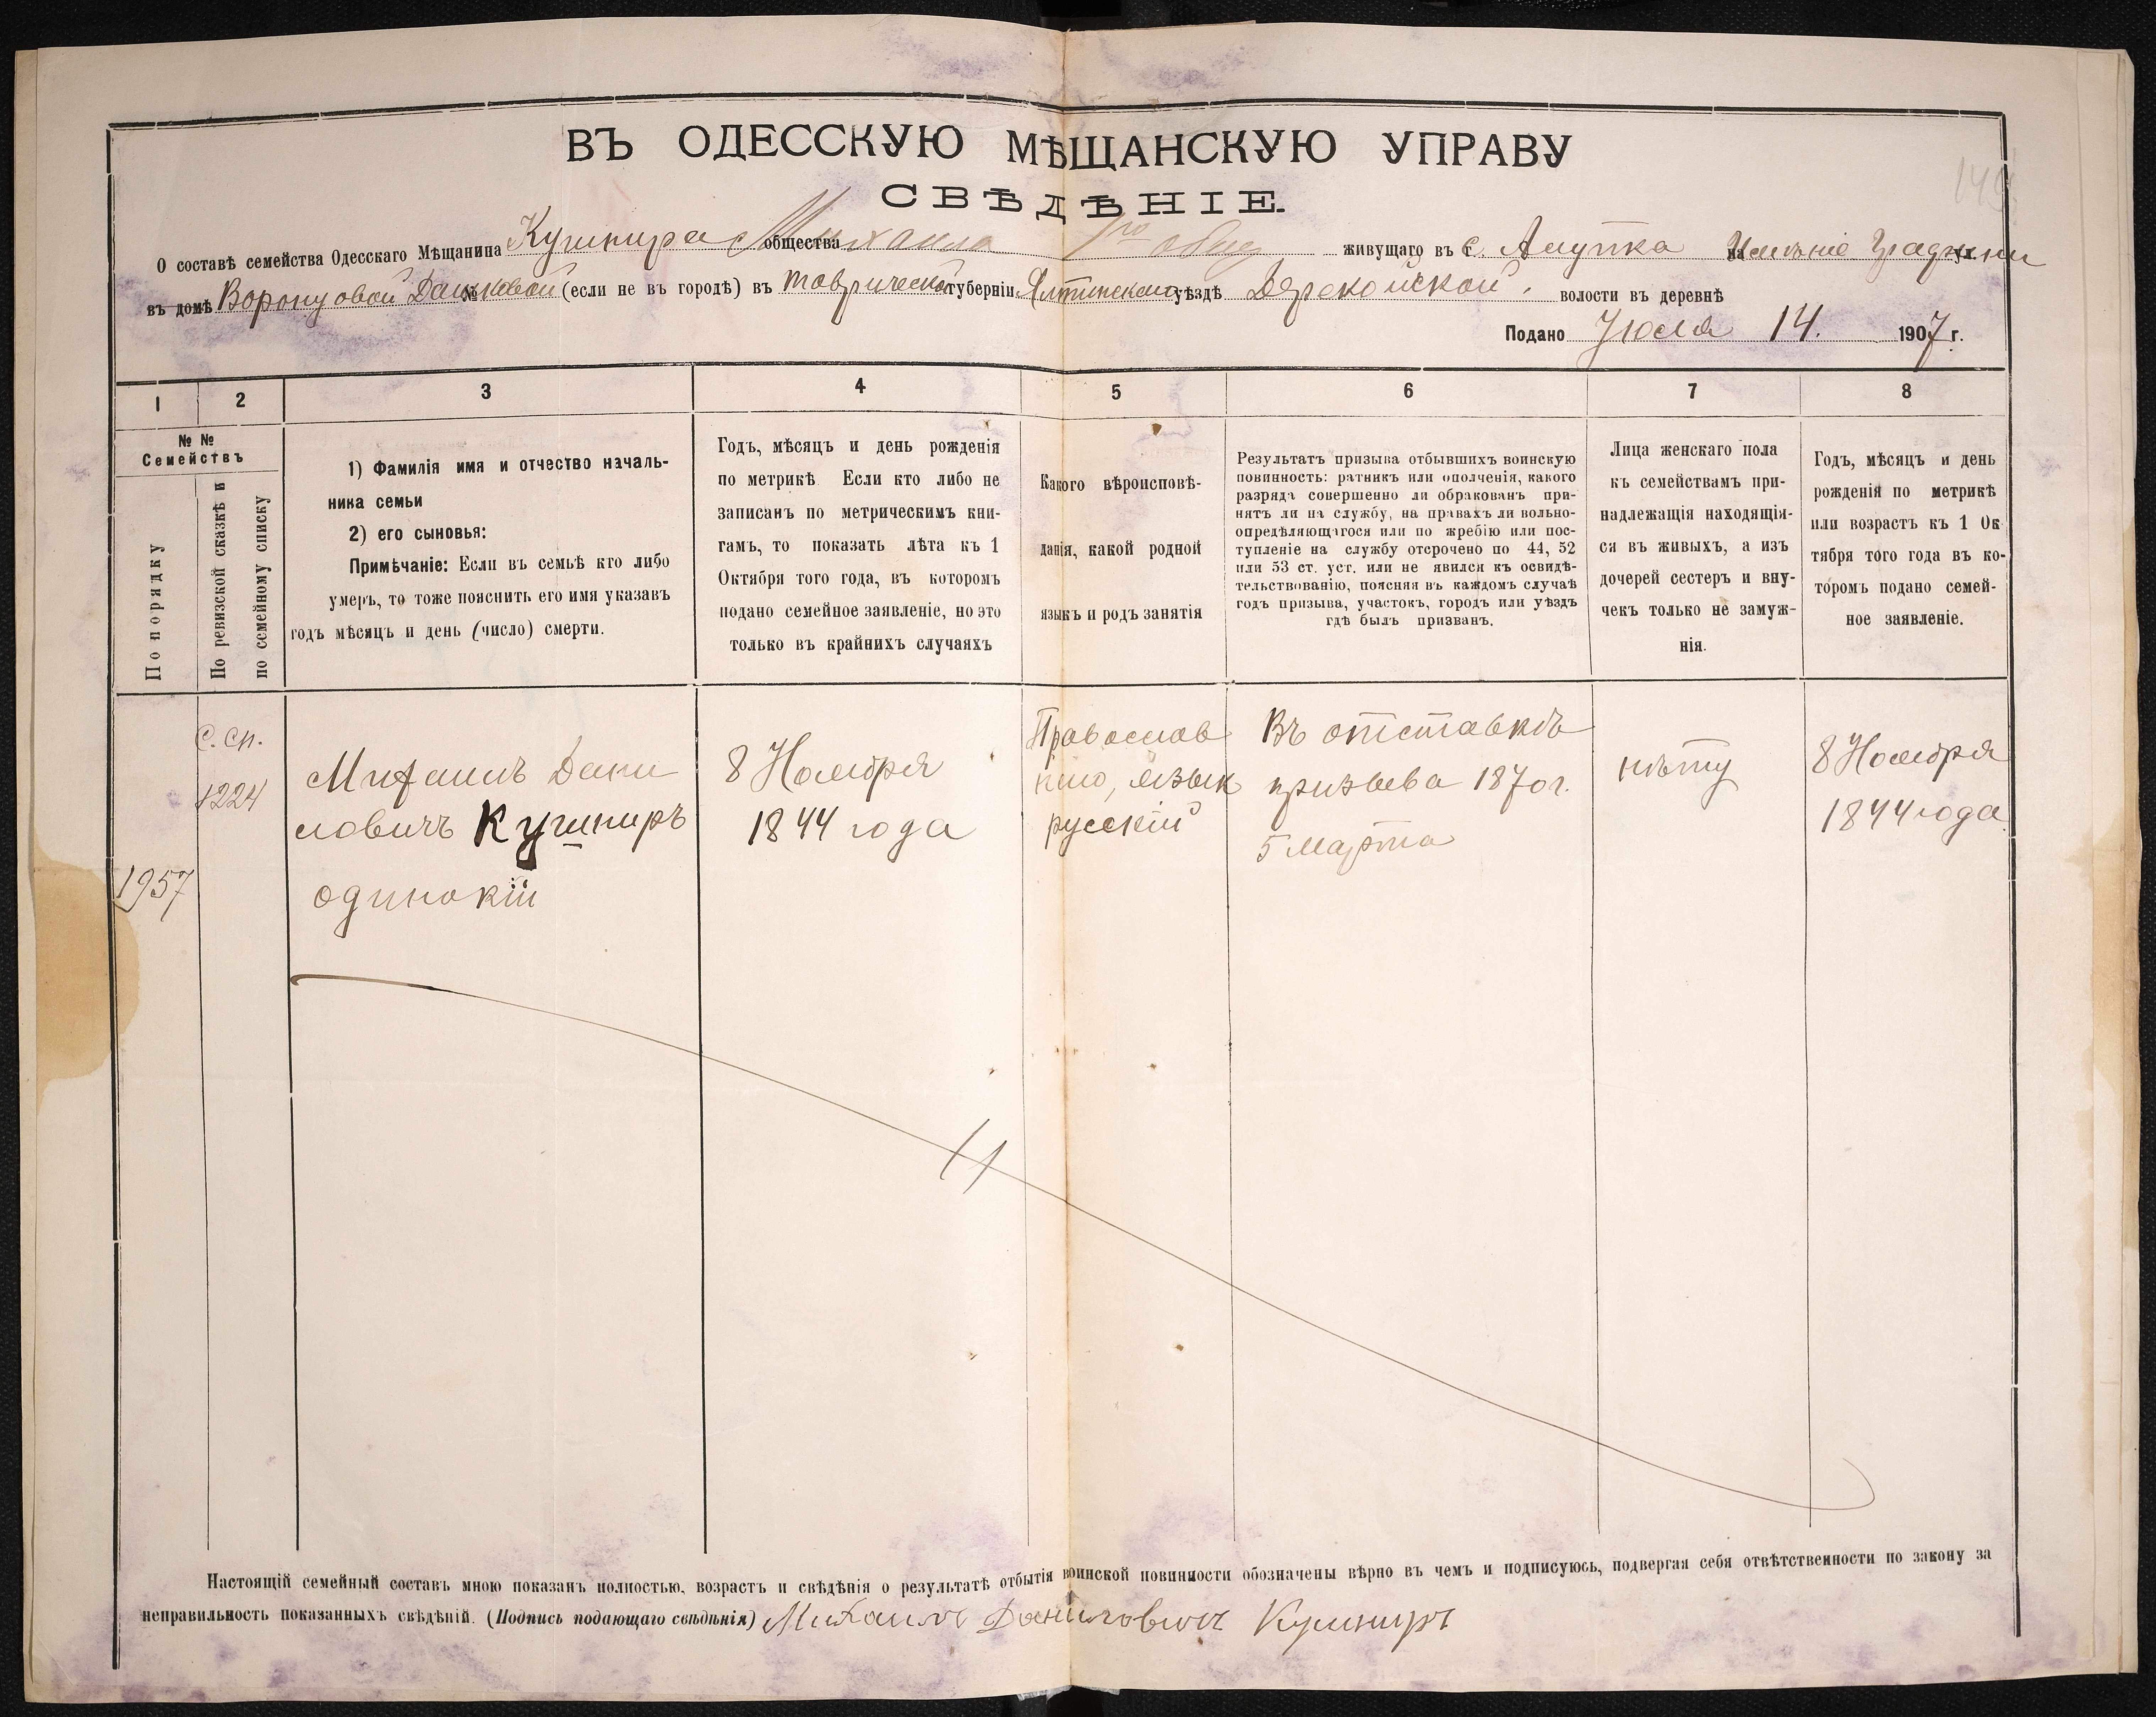 ВЪ ОДЕССКУЮ МѢЩАНСКУЮ УПРАВУ
СВѢДѢНІЕ.
О составѣ семейства Одесскаго Мѣщанина Кушнира Михаила общества 1го общ живущаго въ с. Алупка на Имѣніе Графини ул.
въ домѣ Воронцовой Дашковой № (если не въ городѣ) въ Таврической губерніи Ялтинскаго уѣздѣ Дерекойской волости въ деревнѣ
Подано Июля 14. 1907 г.
1 2 3 4 5 6 7 8
№ №
Семействъ
По порядку
По ревизской сказкѣ и
по семейному списку
1) Фамилія имя и отчество началь-
ника семьи
2) его сыновья:
Примѣчаніе: Если въ семьѣ кто либо
умеръ, то тоже пояснить его имя указавъ
годъ мѣсяцъ и день (число) смерти.
Годъ, мѣсяцъ и день рожденія
по метрикѣ Если кто либо не
записанъ по метрическимъ кни-
гамъ, то показать лѣта къ 1
Октября того года, въ которомъ
подано семейное заявленіе, но это
только въ крайнихъ случаяхъ
Какого вѣроисповѣ-
данія, какой родной
языкъ и родъ занятія
Результатъ призыва отбывшихъ воинскую
повинность: ратникъ или ополченія, какого
разряда совершенно ли обракованъ при-
нятъ ли на службу, на правахъ ли вольно-
опредѣляющагося или по жребію или пос-
тупленіе на службу отсрочено по 44, 52
или 53 ст. уст. или не явился къ освидѣ-
тельствованію, поясняя въ каждомъ случаѣ
годъ призыва, участокъ, городъ или уѣздъ
гдѣ былъ призванъ.
Лица женскаго пола
къ семействамъ при-
надлежащія находящія-
ся въ живыхъ, а изъ
дочерей сестеръ и вну-
чекъ только не замуж-
нія.
Годъ, мѣсяцъ и день
рожденія по метрикѣ
или возрастъ къ 1 Ок
тября того года въ ко-
торомъ подано семей-
ное заявленіе.
1957
С. сп.
1224
Михаилъ Дани
ловичъ Кушниръ
одинокій
8 Ноября
1844 года
Православ
ною, языкъ
русскій
Въ отставкѣ
призыва 1870 г.
5 Марта
нѣту
8 Ноября
1844 года
Настоящій семейный составъ мною показанъ полностью, возрастъ и свѣдѣнія о результатѣ отбытія воинской повинности обозначены вѣрно въ чемъ и подписуюсь, подвергая себя отвѣтственности по закону за
неправильность показанныхъ свѣдѣній. (Подпись подающаго свѣдѣнія) Михаилъ Даниловичъ Кушниръ